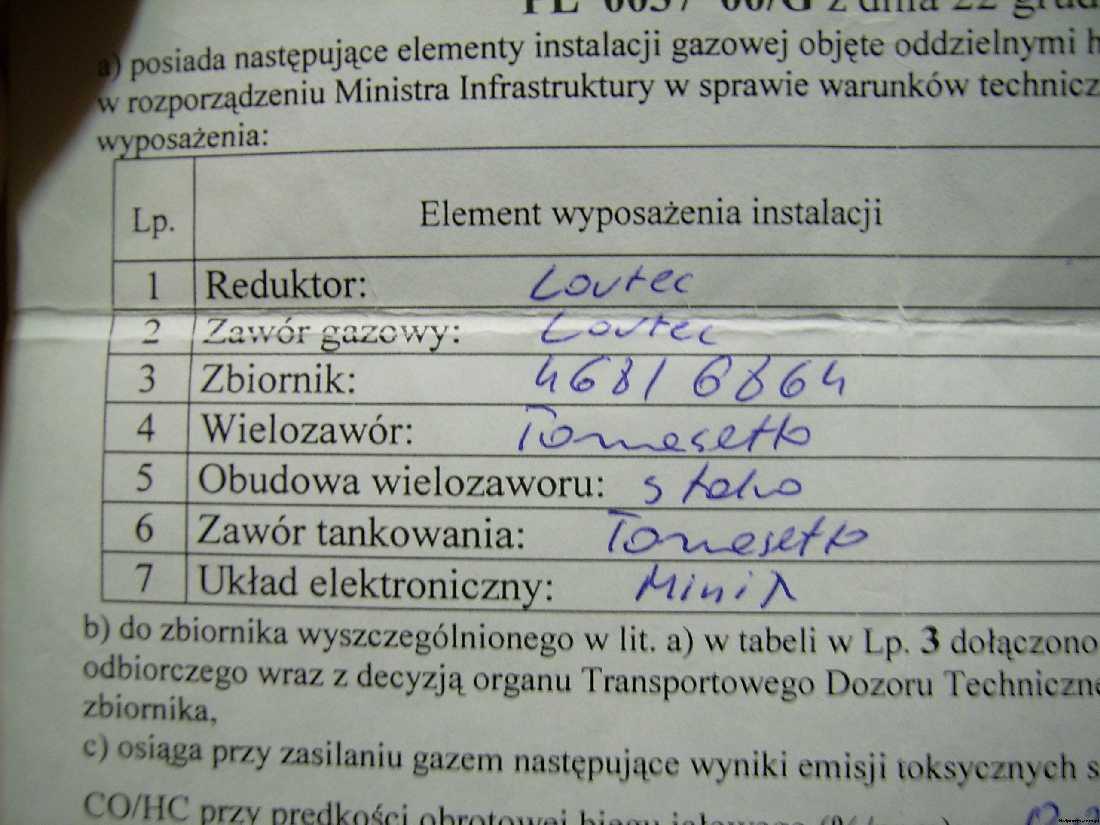 a) posiada następujące elementy instalacji gazowej objęte oddzielnymi h
w rozporządzeniu Ministra Infrastruktury w sprawie warunków technicz
wyposażenia:
Lp. Element wyposażenia instalacji
1 Reduktor: Lovtec
2 Zawór gazowy: Lovtec
3 Zbiornik: 468/6864
4 Wielozawór: Tomasetto
5 Obudowa wielozaworu: stako
6 Zawór tankowania: Tomasetto
7 Układ elektroniczny: Mini λ
b) do zbiornika wyszczególnionego w lit. a) w tabeli w Lp. 3 dołączono
odbiorczego wraz z decyzją organu Transportowego Dozoru Techniczne
zbiornika,
c) osiąga przy zasilaniu gazem następujące wyniki emisji toksycznych s
CO/HC przy prędkości obrotowej biegu jałowego